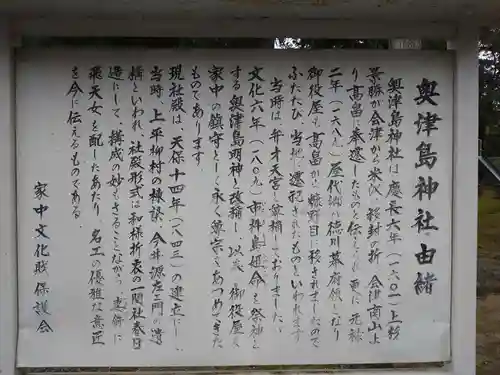 奥津島神社由緒
奥津島神社は慶長六年(一六〇一)上杉
景勝が会津から米沢へ移封の折、会津南山より
高畠に奉遷したものと伝えられ 更に 元禄
二年(一六八九)屋代郷が徳川幕府領となり
御役屋も高畠から糠野目に移されましたので
ふたたび 当地に遷祀されたものといわれます
当時は弁才天宮と尊称しておりましたが、
文化六年(一八〇九)市杵島姫命を祭神と
する奥津島明神と改称し 以来 御役屋及
家中の鎮守として永く尊崇をあつめてきた
ものであります。
現社殿は、天保十四年(一八四三)の建立にして
当時、上平柳村の棟梁 今井源左エ門の遺
構といわれ、社殿形式は和様折衷の一間社春日
造にして、構成の妙もさることながら、妻飾に
飛天女を配したあたり、名工の優雅な意匠
を今に伝えるものである。
家中文化財保護会